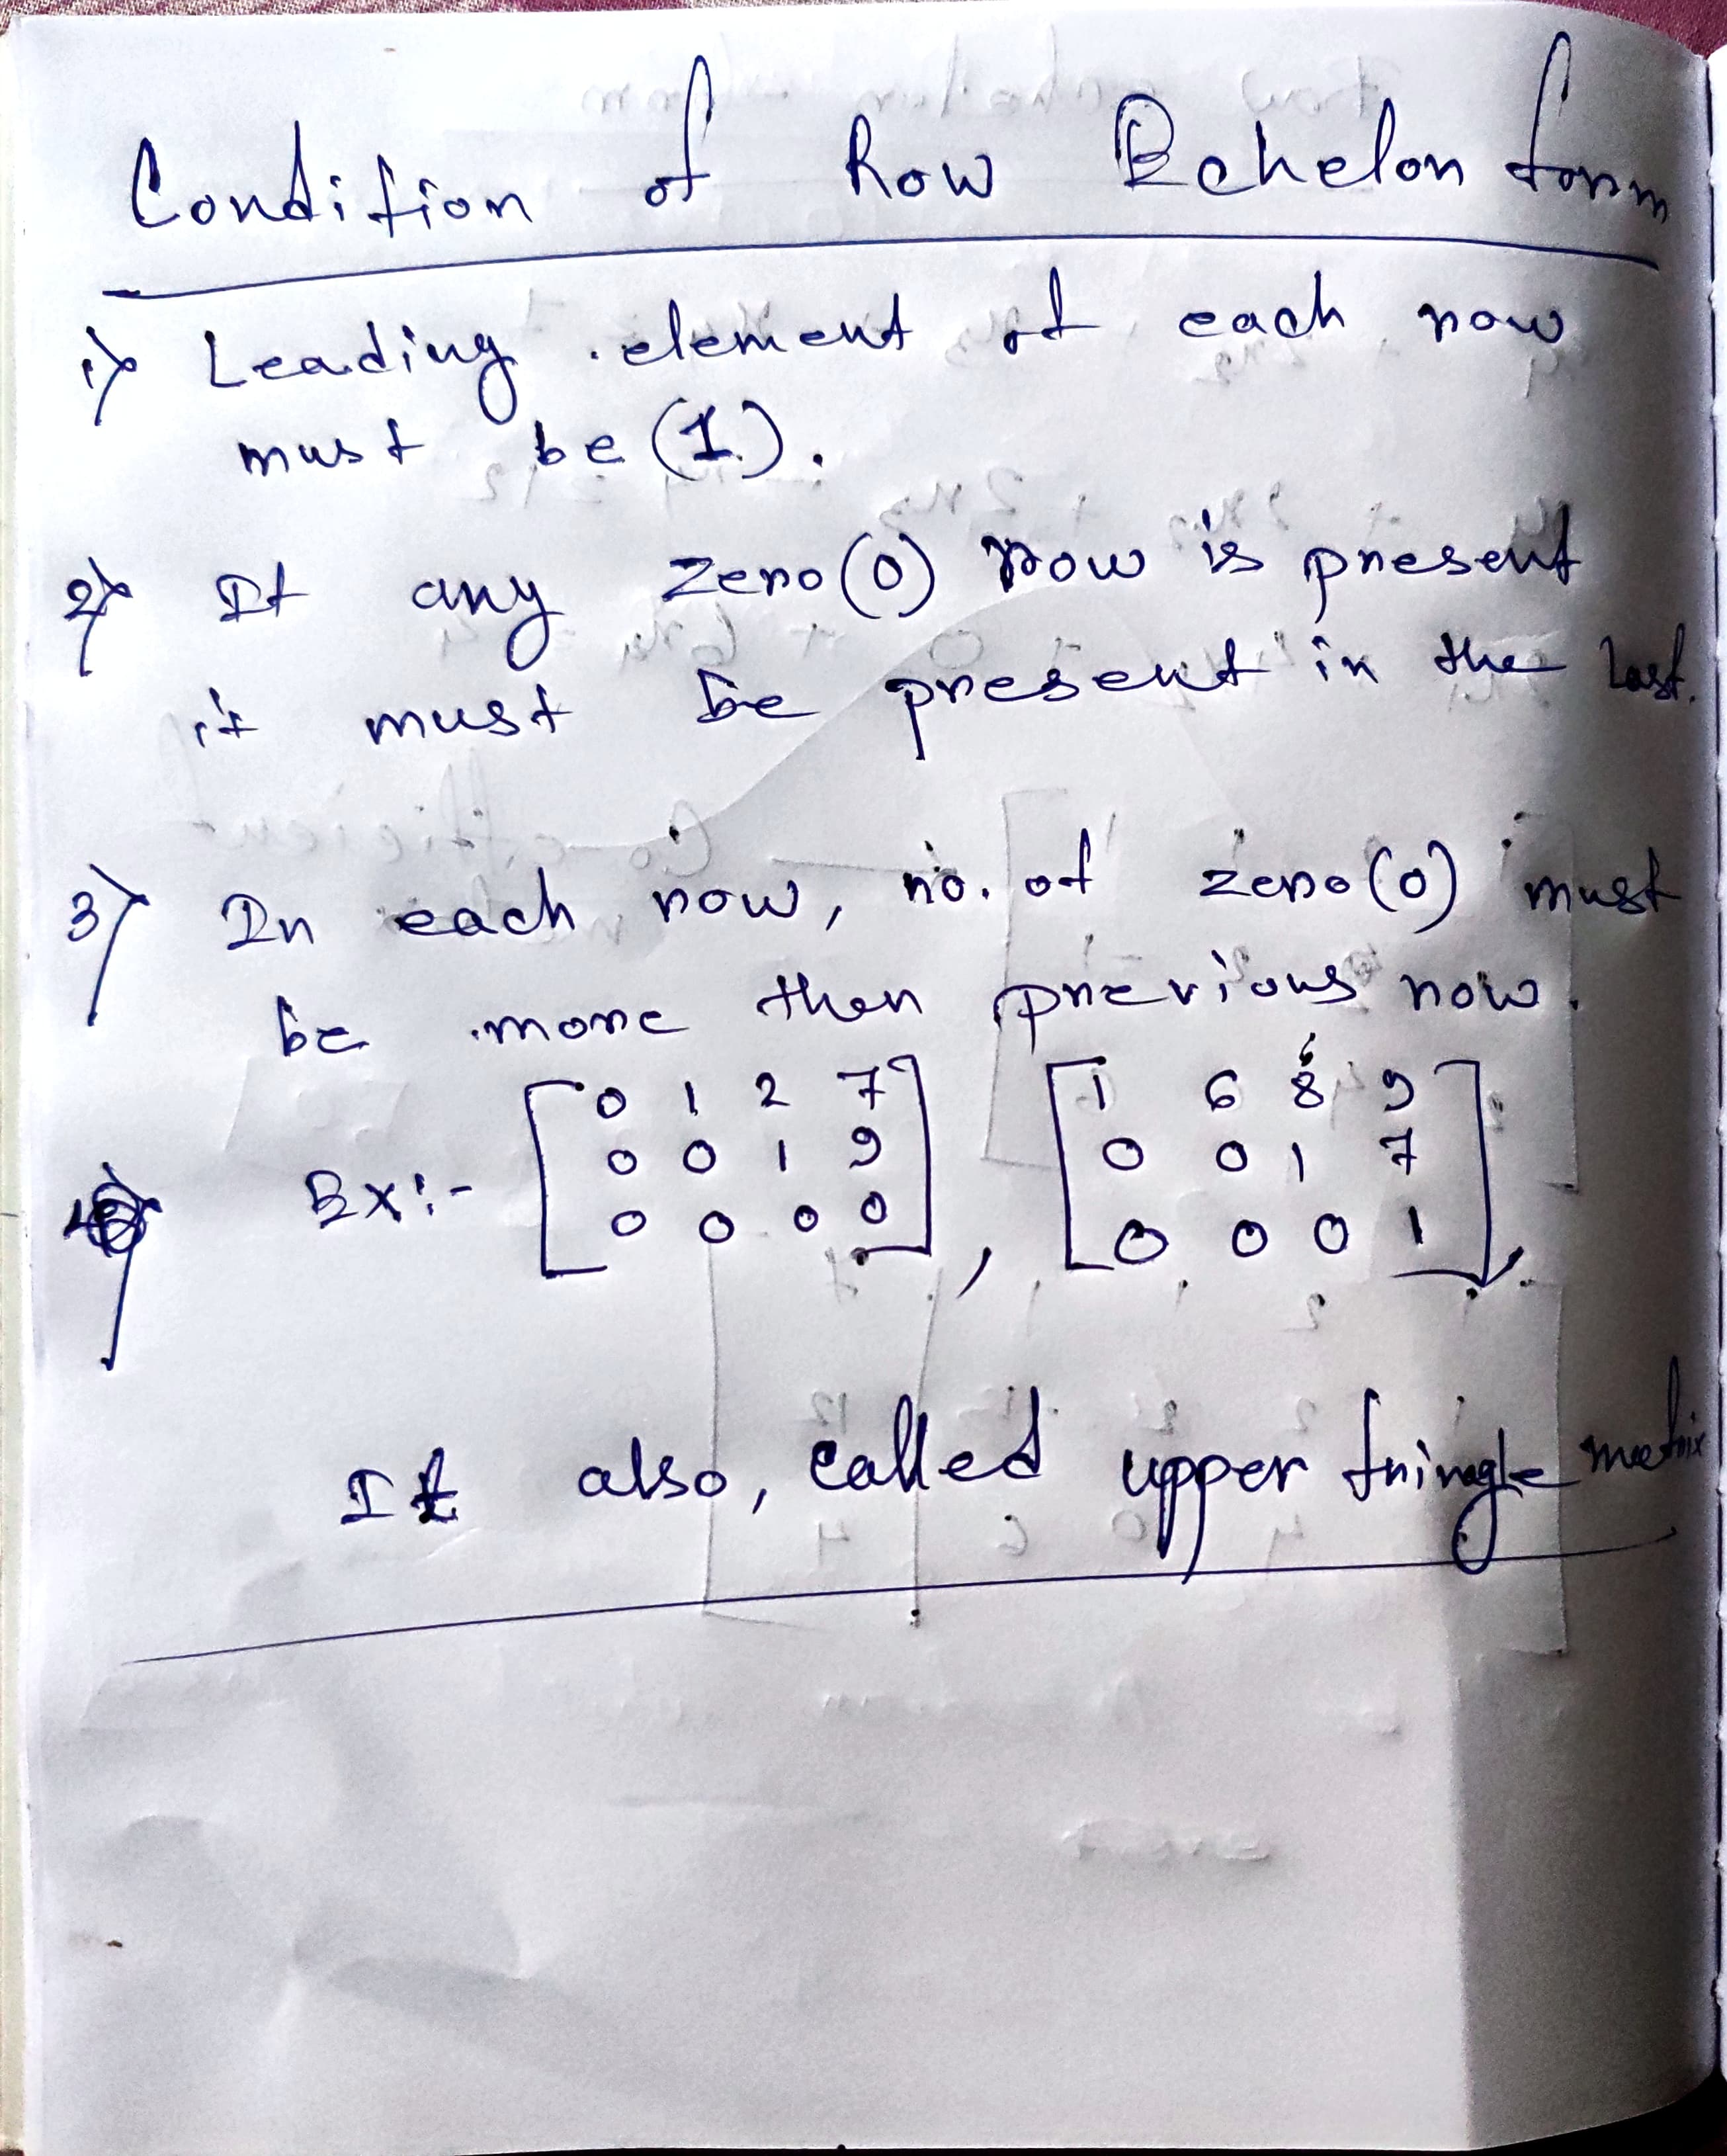 Condition of Row Echelon form
1) Leading element of each row
must be (1).
2) If any zero(0) row is present
it must be present in the last.
3) In each row, no. of zero(0) must
be more then previous row.
Ex:- [0 1 2 7], [1 6 8 9]
[0 0 1 9] [0 0 1 7]
[0 0 0 0] [0 0 0 1],
It also, called upper tringle matrix